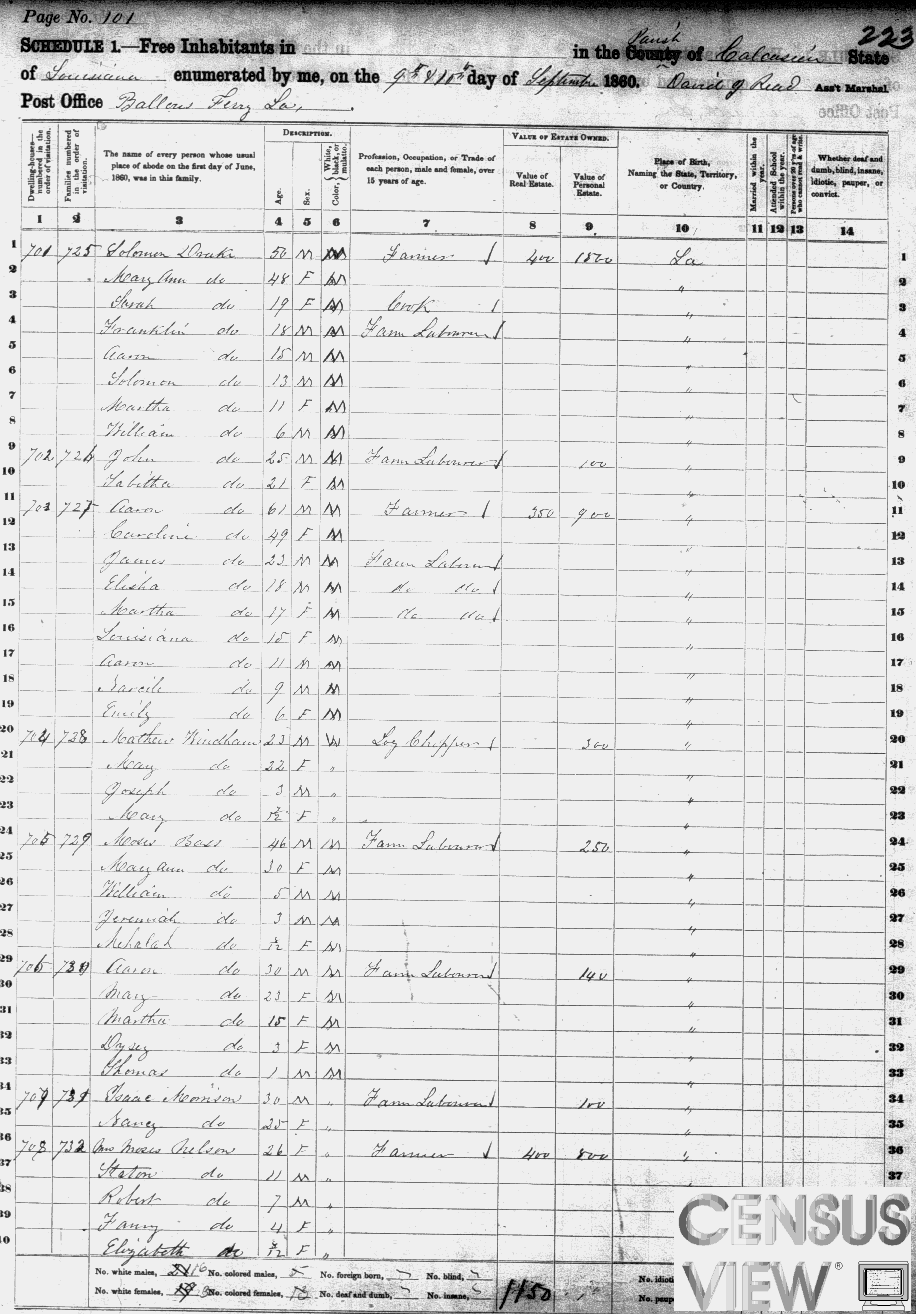 Page No. 101
223
SCHEDULE 1.—Free Inhabitants in in the County Parish of Calcasieu State
of Louisiana enumerated by me, on the 9th & 10th day of September 1860. David J Read Ass't Marshal.
Post Office Ballous Ferry La.
Dwelling-houses—numbered in the order of visitation.
Families numbered in the order of visitation.
The name of every person whose usual place of abode on the first day of June, 1860, was in this family.
DESCRIPTION.
Age.
Sex.
Color, { White, black, or mulatto.
Profession, Occupation, or Trade of each person, male and female, over 15 years of age.
VALUE OF ESTATE OWNED.
Value of Real Estate.
Value of Personal Estate.
Place of Birth, Naming the State, Territory, or Country.
Married within the year.
Attended School within the year.
Persons over 20 y'rs of age who cannot read & write.
Whether deaf and dumb, blind, insane, idiotic, pauper, or convict.
1 2 3 4 5 6 7 8 9 10 11 12 13 14
1 701 725 Solomon Drake 50 M M Farmer 400 1500 La 1
2 Mary Ann do 48 F M " 2
3 Sarah do 19 F M Cook " 3
4 Franklin do 18 M M Farm Labourer " 4
5 Aaron do 15 M M " 5
6 Solomon do 13 M M " 6
7 Martha do 11 F M " 7
8 William do 6 M M " 8
9 702 726 John do 25 M M Farm Labourer 100 " 9
10 Tabitha do 21 F M " 10
11 703 727 Aaron do 61 M M Farmer 350 900 " 11
12 Caroline do 49 F M " 12
13 James do 23 M M Farm Labourer " 13
14 Elisha do 18 M M do do " 14
15 Martha do 17 F M do do " 15
16 Louisiana do 15 F M " 16
17 Aaron do 11 M M " 17
18 do 9 M M " 18
19 Emily do 6 F M " 19
20 704 728 Mathew Windham 23 M W Log Chipper 300 " 20
21 Mary do 22 F " " 21
22 Joseph do 3 M " " 22
23 Mary do /12 F " " 23
24 705 729 Moses Bass 46 M M Farm Labourer 250 " 24
25 Mary Ann do 30 F M " 25
26 William do 5 M M " 26
27 Jeremiah do 3 M M " 27
28 Mehalah do /12 F M " 28
29 706 730 Aaron do 30 M M Farm Labourer 140 " 29
30 Mary do 23 F M " 30
31 Martha do 15 F M " 31
32 do 3 F M " 32
33 Thomas do 1 M M " 33
34 707 731 Isaac Morrison 30 M " Farm Labourer 100 " 34
35 Nancy do 25 F " " 35
36 708 732 Mrs Moses Nelson 26 F " Farmer 400 800 " 36
37 Staton do 11 M " 37
38 Robert do 7 M "
39 Fanny do 4 F "
40 Elizabeth do /12 F "
No. white males, 16 No. colored males, No. foreign born, No. blind, 1150 No. idiotic
No. white females, No. colored females, No. deaf and dumb, No. insane, No. paup
CENSUS
VIEW®